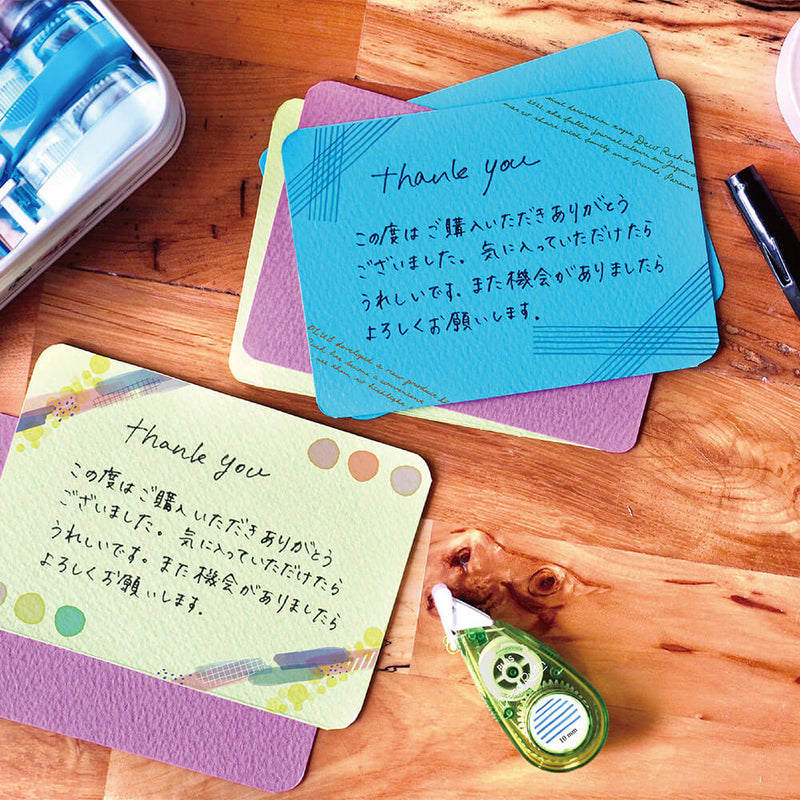 thank you
この度はご購入いただきありがとう
ございました。気に入っていただけたら
うれしいです。また機会がありましたら
よろしくお願いします。
thank you
この度はご購入いただきありがとう
ございました。気に入っていただけたら
うれしいです。また機会がありましたら
よろしくお願いします。
PLUS
10 mm